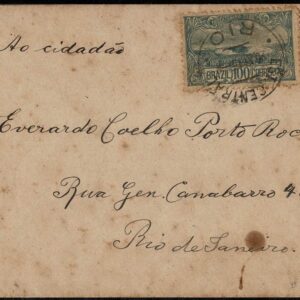 Ao cidadão
BRAZIL 100 RÉIS
RIO
CENTRAL
Everardo Coelho Porto Roc
Rua Gen. Canabarro 4
Rio de Janeiro.